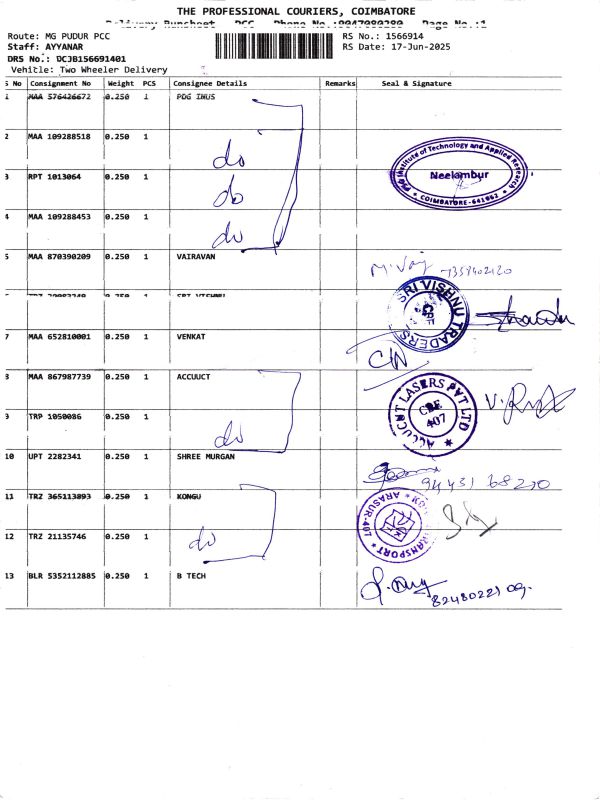 THE PROFESSIONAL COURIERS, COIMBATORE
Delivery Runsheet PCC Phone No.:9047080280 Page No.:1
Route: MG PUDUR PCC
Staff: AYYANAR
DRS No.: DCJB156691401
Vehitle: Two Wheeler Delivery
RS No.: 1566914
RS Date: 17-Jun-2025
S No Consignment No Weight PCS Consignee Details Remarks Seal & Signature
1 MAA 576426672 0.250 1 PDG INUS
2 MAA 109288518 0.250 1 do
PSG Institute of Technology and Applied Research
Neelambur
* COIMBATORE-641062 *
3 RPT 1013064 0.250 1 do
4 MAA 109288453 0.250 1 do
5 MAA 870390209 0.250 1 VAIRAVAN
SRI VISHNU TRADERS
7 MAA 652810001 0.250 1 VENKAT
8 MAA 867987739 0.250 1 ACCUUCT
ACCUCNT LASERS PVT LTD
CBE
407
9 TRP 1050086 0.250 1 do
10 UPT 2282341 0.250 1 SHREE MURGAN
94431 68210
11 TRZ 365113893 0.250 1 KONGU
TRANSPORT * ARASUR-407
12 TRZ 21135746 0.250 1 do
13 BLR 5352112885 0.250 1 B TECH